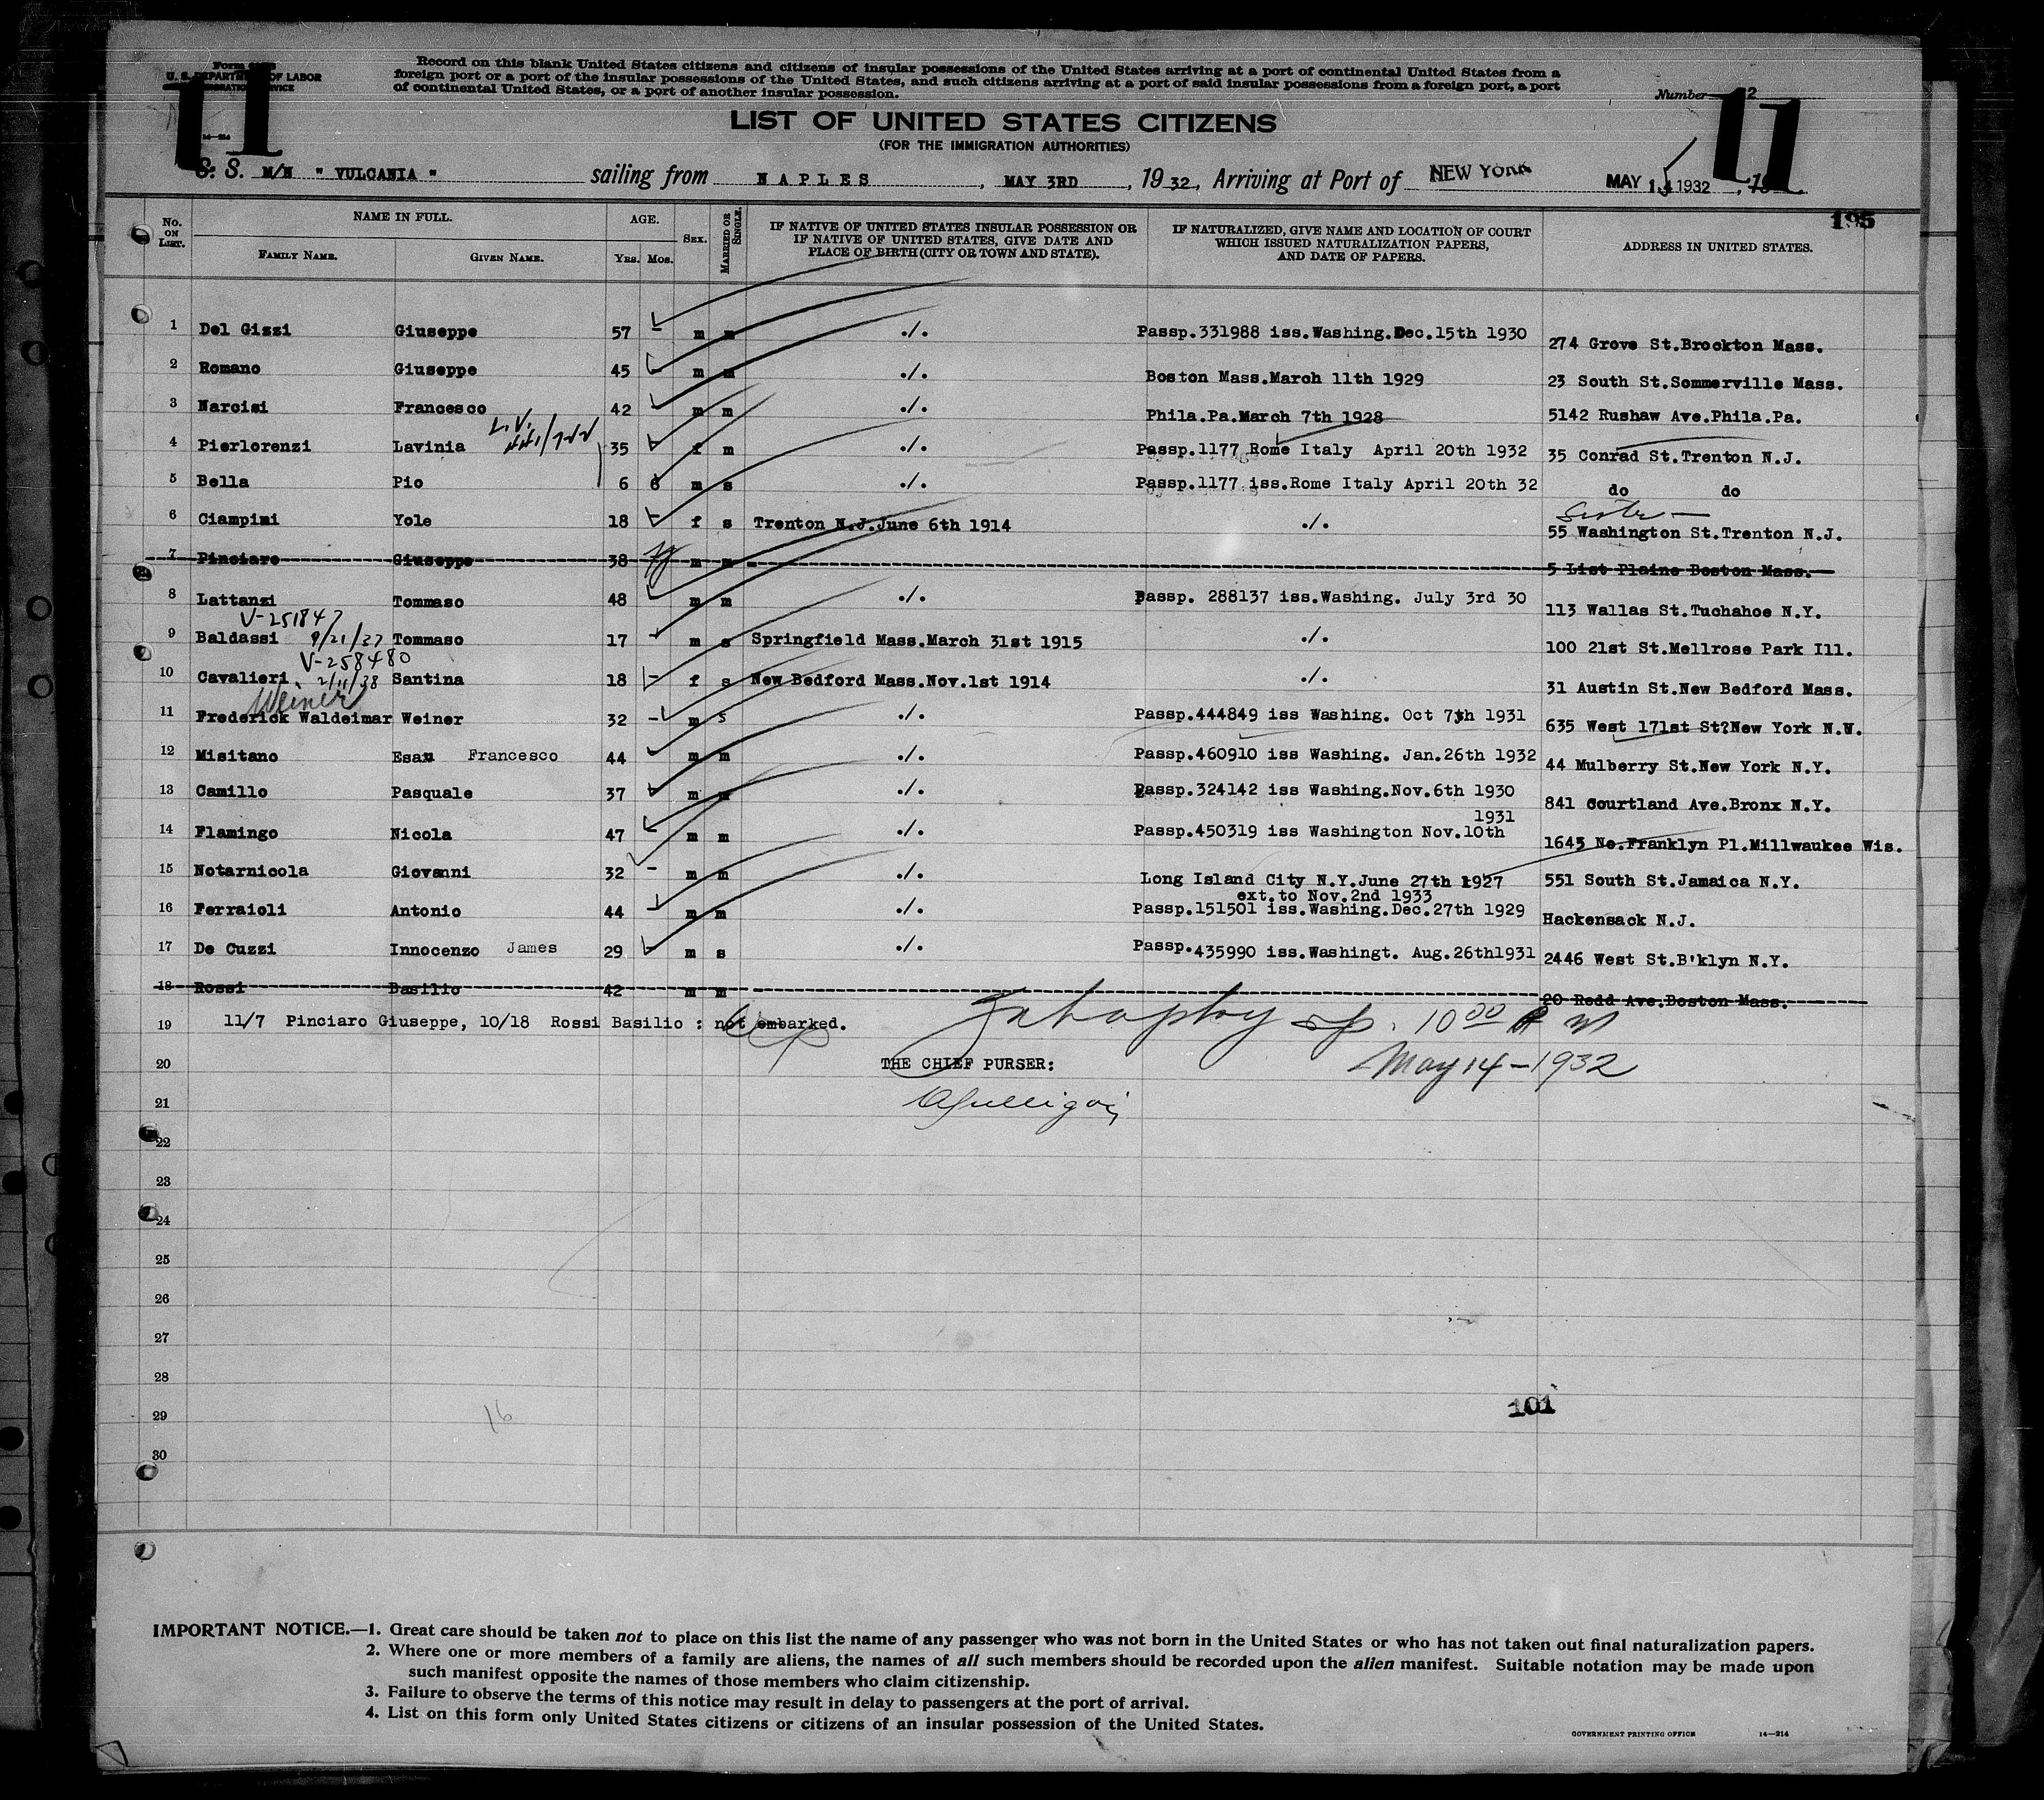 U. S. DEPARTMENT OF LABOR
Record on this blank United States citizens and citizens of insular possessions of the United States arriving at a port of continental United States from a
foreign port or a port of the insular possessions of the United States, and such citizens arriving at a port of said insular possessions from a foreign port, a port
of continental United States, or a port of another insular possession.
Number
11
11
14—214
LIST OF UNITED STATES CITIZENS
(FOR THE IMMIGRATION AUTHORITIES)
S. S. M/N " VULCANIA " sailing from NAPLES, MAY 3RD, 1932, Arriving at Port of NEW YORK MAY 1 1932, 19
195
No. ON LIST. NAME IN FULL. AGE. SEX. MARRIED OR SINGLE. IF NATIVE OF UNITED STATES INSULAR POSSESSION OR IF NATIVE OF UNITED STATES, GIVE DATE AND PLACE OF BIRTH (CITY OR TOWN AND STATE). IF NATURALIZED, GIVE NAME AND LOCATION OF COURT WHICH ISSUED NATURALIZATION PAPERS, AND DATE OF PAPERS. ADDRESS IN UNITED STATES.
FAMILY NAME. GIVEN NAME. YRS. MOS.
1 Del Gizzi Giuseppe 57 - m m ./. Passp.331988 iss.Washing.Dec.15th 1930 274 Grove St.Brockton Mass.
2 Romano Giuseppe 45 m m ./. Boston Mass.March 11th 1929 23 South St.Sommerville Mass.
3 Narcisi Francesco 42 m m ./. Phila.Pa.March 7th 1928 5142 Rushaw Ave.Phila.Pa.
L.V.
4 Pierlorenzi Lavinia 35 f m ./. Passp.1177 Rome Italy April 20th 1932 35 Conrad St.Trenton N.J.
5 Bella Pio 6 6 m s ./. Passp.1177 iss.Rome Italy April 20th 32 do do
Sister —
6 Ciampini Yole 18 - f s Trenton N.J.June 6th 1914 ./. 55 Washington St.Trenton N.J.
7 Pinciaro Giuseppe 38 m m 5 List Plaine Boston Mass.
8 Lattanzi Tommaso 48 m m ./. Passp. 288137 iss.Washing. July 3rd 30 113 Wallas St.Tuchahoe N.Y.
V-251847
9 Baldassi 9/21/37 Tommaso 17 m s Springfield Mass.March 31st 1915 ./. 100 21st St.Mellrose Park Ill.
V-258480
10 Cavalieri. 2/11/38 Santina 18 - f s New Bedford Mass.Nov.1st 1914 ./. 31 Austin St.New Bedford Mass.
Weiner
11 Frederick Waldeimar Weiner 32 - m s ./. Passp.444849 iss Washing. Oct 7th 1931 635 West 171st St?New York N.W.
12 Misitano Esau Francesco 44 m m ./. Passp.460910 iss Washing. Jan.26th 1932 44 Mulberry St.New York N.Y.
13 Camillo Pasquale 37 m m ./. Passp.324142 iss Washing.Nov.6th 1930 841 Courtland Ave.Bronx N.Y.
1931
14 Flamingo Nicola 47 m m ./. Passp.450319 iss Washington Nov.10th 1645 No.Franklyn Pl.Millwaukee Wis.
15 Notarnicola Giovanni 32 - m m ./. Long Island City N.Y.June 27th 1927 551 South St.Jamaica N.Y.
ext.to Nov.2nd 1933
16 Ferraioli Antonio 44 m m ./. Passp.151501 iss.Washing.Dec.27th 1929 Hackensack N.J.
17 De Cuzzi Innocenzo James 29 - m s ./. Passp.435990 iss.Washingt. Aug.26th1931 2446 West St.B'klyn N.Y.
18 Rossi Basilio 42 m m 20 Redd Ave.Boston Mass.
19 11/7 Pinciaro Giuseppe, 10/18 Rossi Basilio : not embarked.
10 00
20 THE CHIEF PURSER: May 14-1932
21
22
23
24
25
26
27
28
29 16 101
30
IMPORTANT NOTICE.—1. Great care should be taken not to place on this list the name of any passenger who was not born in the United States or who has not taken out final naturalization papers.
2. Where one or more members of a family are aliens, the names of all such members should be recorded upon the alien manifest. Suitable notation may be made upon
such manifest opposite the names of those members who claim citizenship.
3. Failure to observe the terms of this notice may result in delay to passengers at the port of arrival.
4. List on this form only United States citizens or citizens of an insular possession of the United States.
GOVERNMENT PRINTING OFFICE 14—214